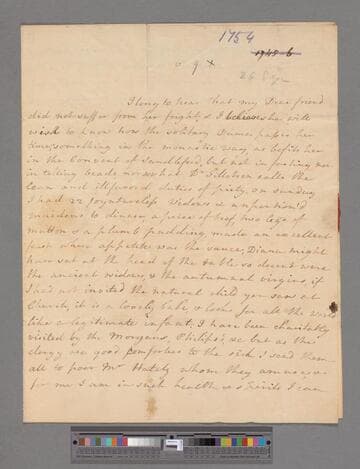 1754
1748 b
5 9 x
I long to hear that my Dear friend
did not suffer from her fright, & I believe she will
wish to know how the solitary Dame passes her
time, something in the monastic way, as befits her
in the Convent of Sandleford, but not in fasting nor
in telling beads nor what Dr Tillotson calls the
lean and illfavord duties of piety, on sunday
I had 22 joyntureless Widows & unportion'd
maidens to dinner, a piece of beef, two legs of
mutton & a plumb pudding, made an excellent
feast where appetite was the sauce, Diana might
have sat at the head of the table so decent were
the ancient widows & the autumnal virgins if
I had not invited the natural child you saw at
Church, it is a lovely babe & looks for all the world
like a legitimate infant, I have been charitably
visited by the Morgans, Philips's, &c but as the
clergy are good comforters to the sick I send them
all to poor Mr Hately whom they amuse, as
for me I am in such health & spirits I can